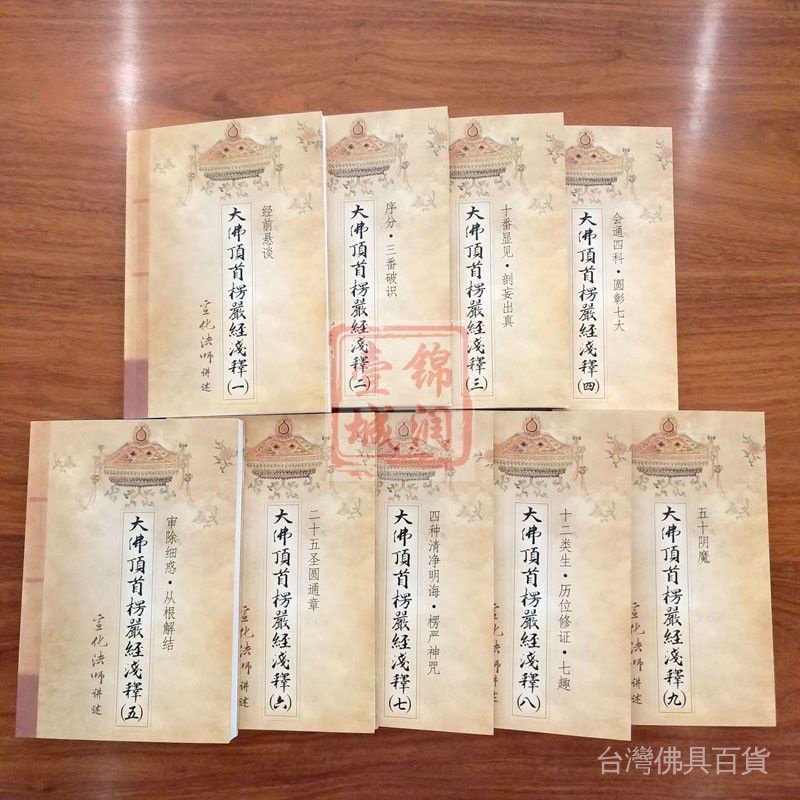 经前悬谈
大佛頂首楞嚴經淺釋(一)
宣化法师讲述
序分·三番破识
大佛頂首楞嚴經淺釋(二)
十番显见·剖妄出真
大佛頂首楞嚴經淺釋(三)
会通四科·圆彰七大
大佛頂首楞嚴經淺釋(四)
审除细惑·从根解结
大佛頂首楞嚴經淺釋(五)
宣化法师讲述
二十五圣圆通章
大佛頂首楞嚴經淺釋(六)
宣化法师讲述
四种清净明诲·楞严神咒
大佛頂首楞嚴經淺釋(七)
十二类生·历位修证·七趣
大佛頂首楞嚴經淺釋(八)
五十阴魔
大佛頂首楞嚴經淺釋(九)
锦润
壹城
台灣佛具百貨